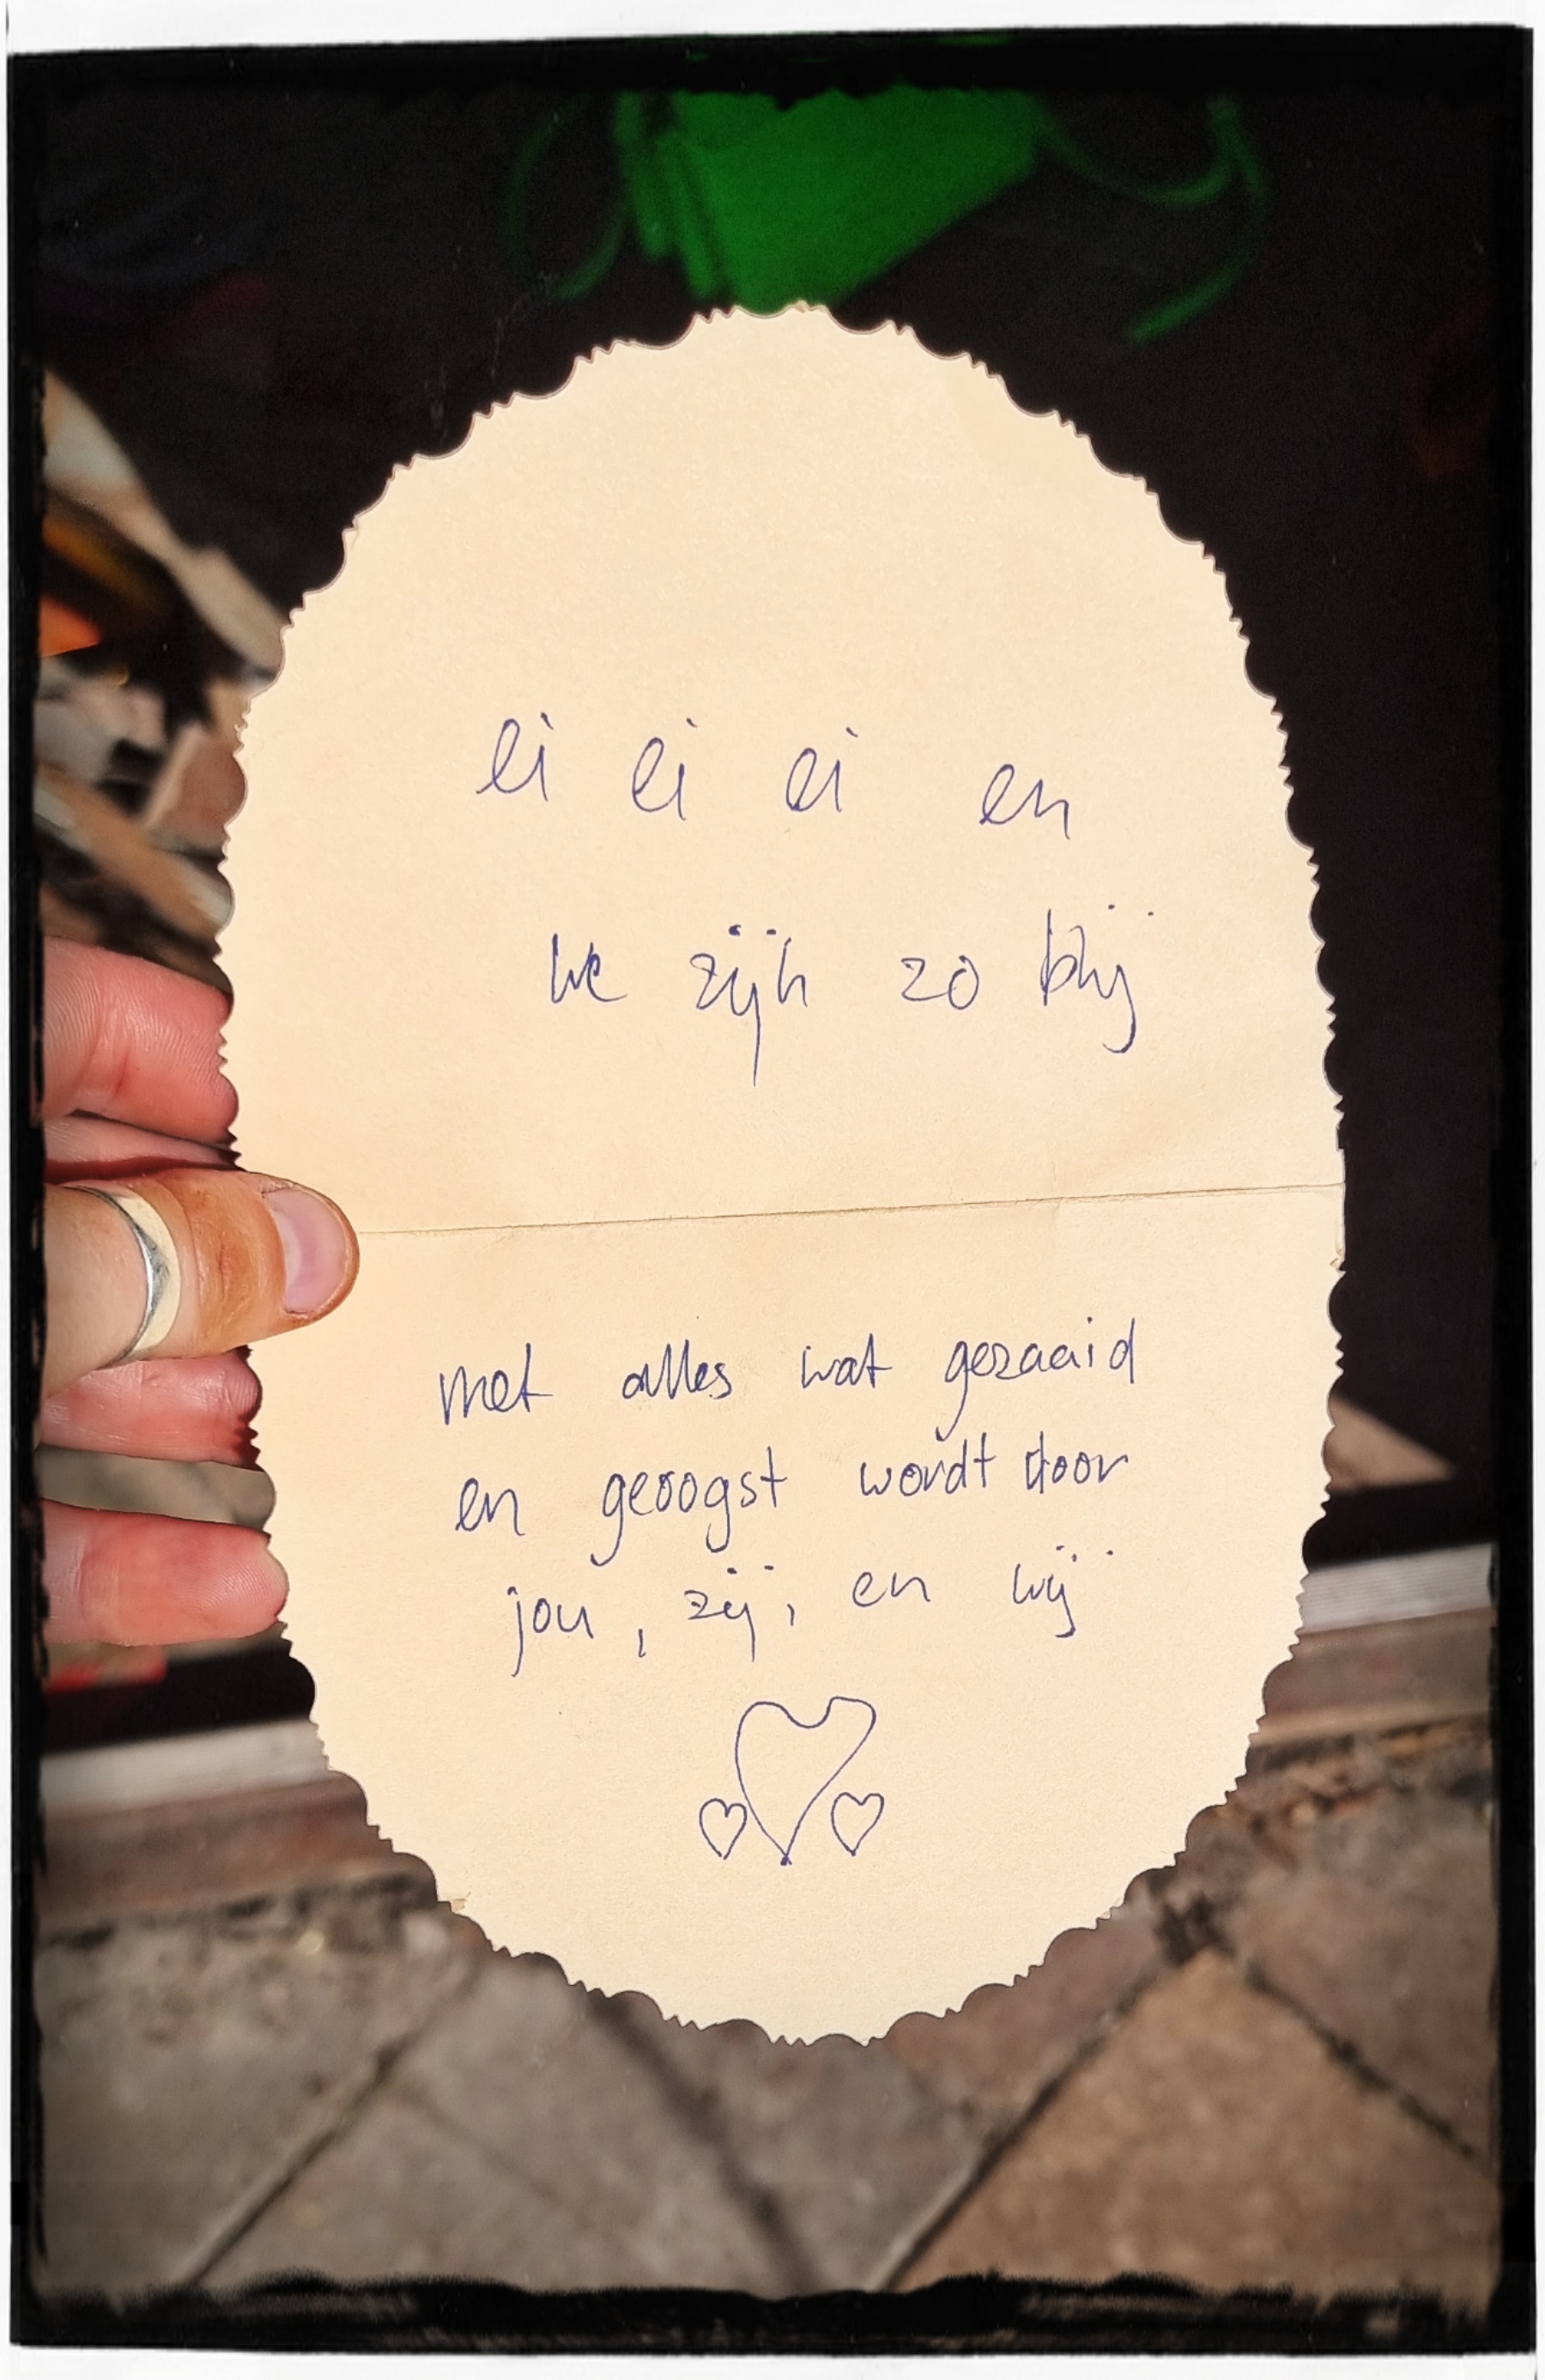 ei ei ei en
we zijn zo blij
met alles wat gezaaid
en geoogst wordt door
jou, zij, en wij